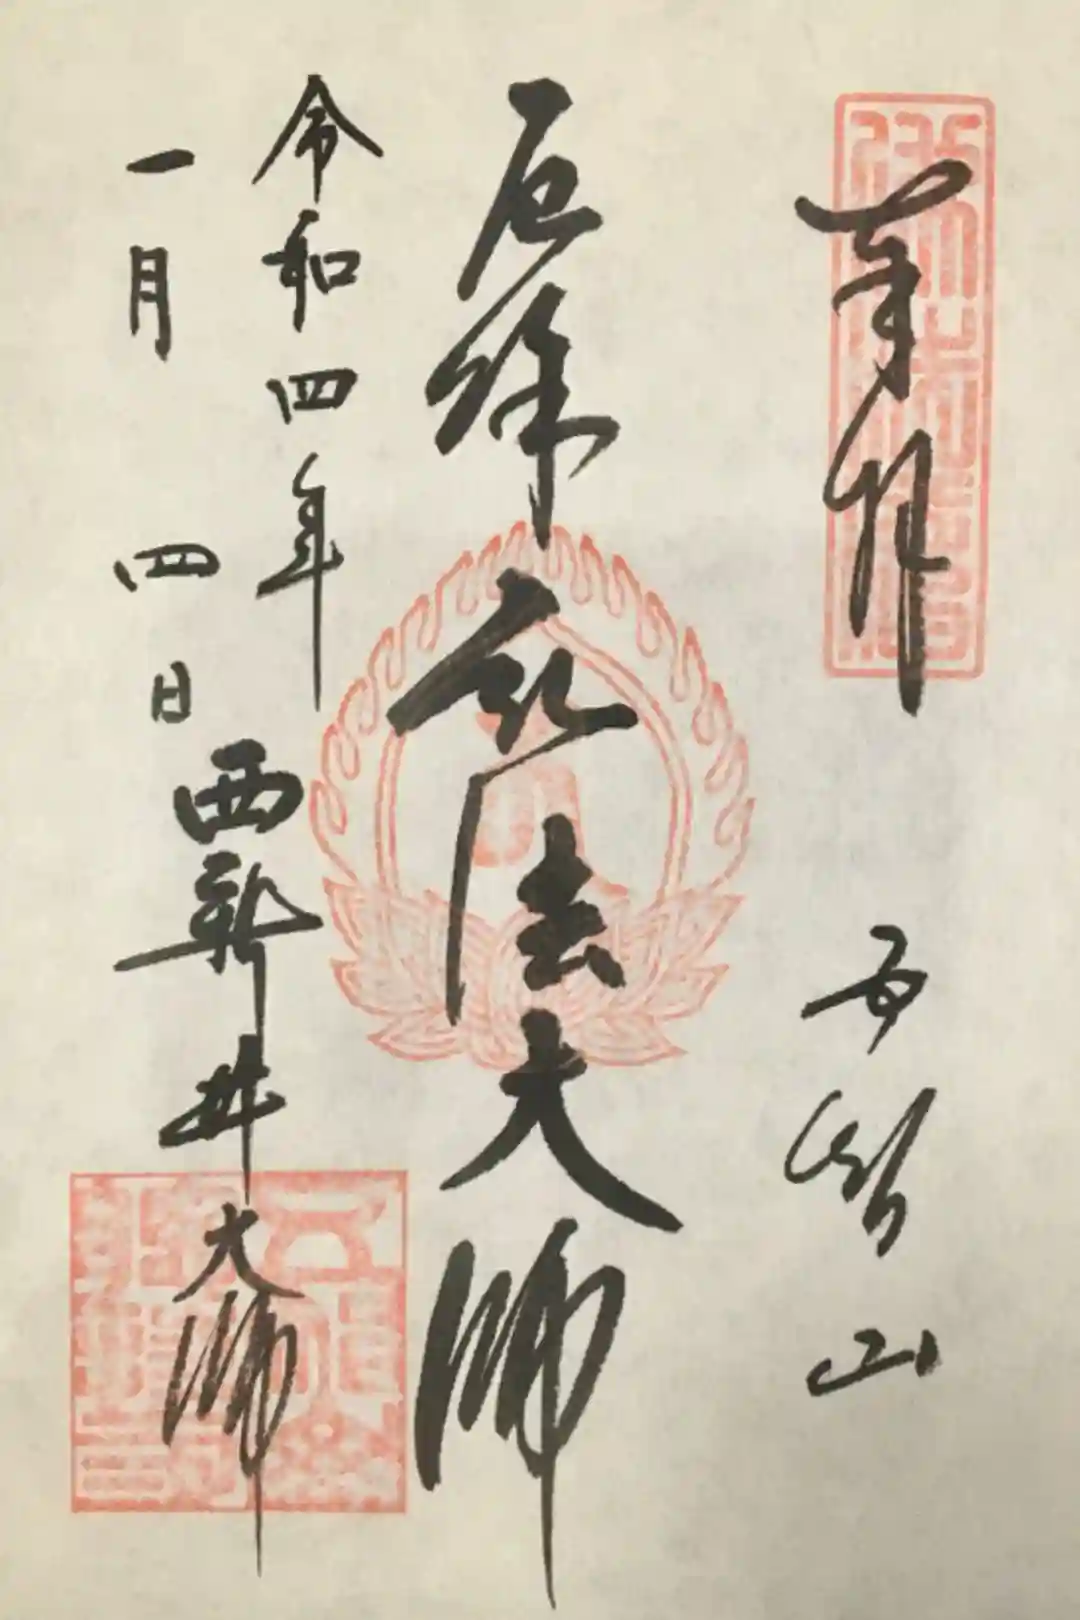 奉拝
五智山
厄除弘法大師
令和四年
一月四日
西新井大師